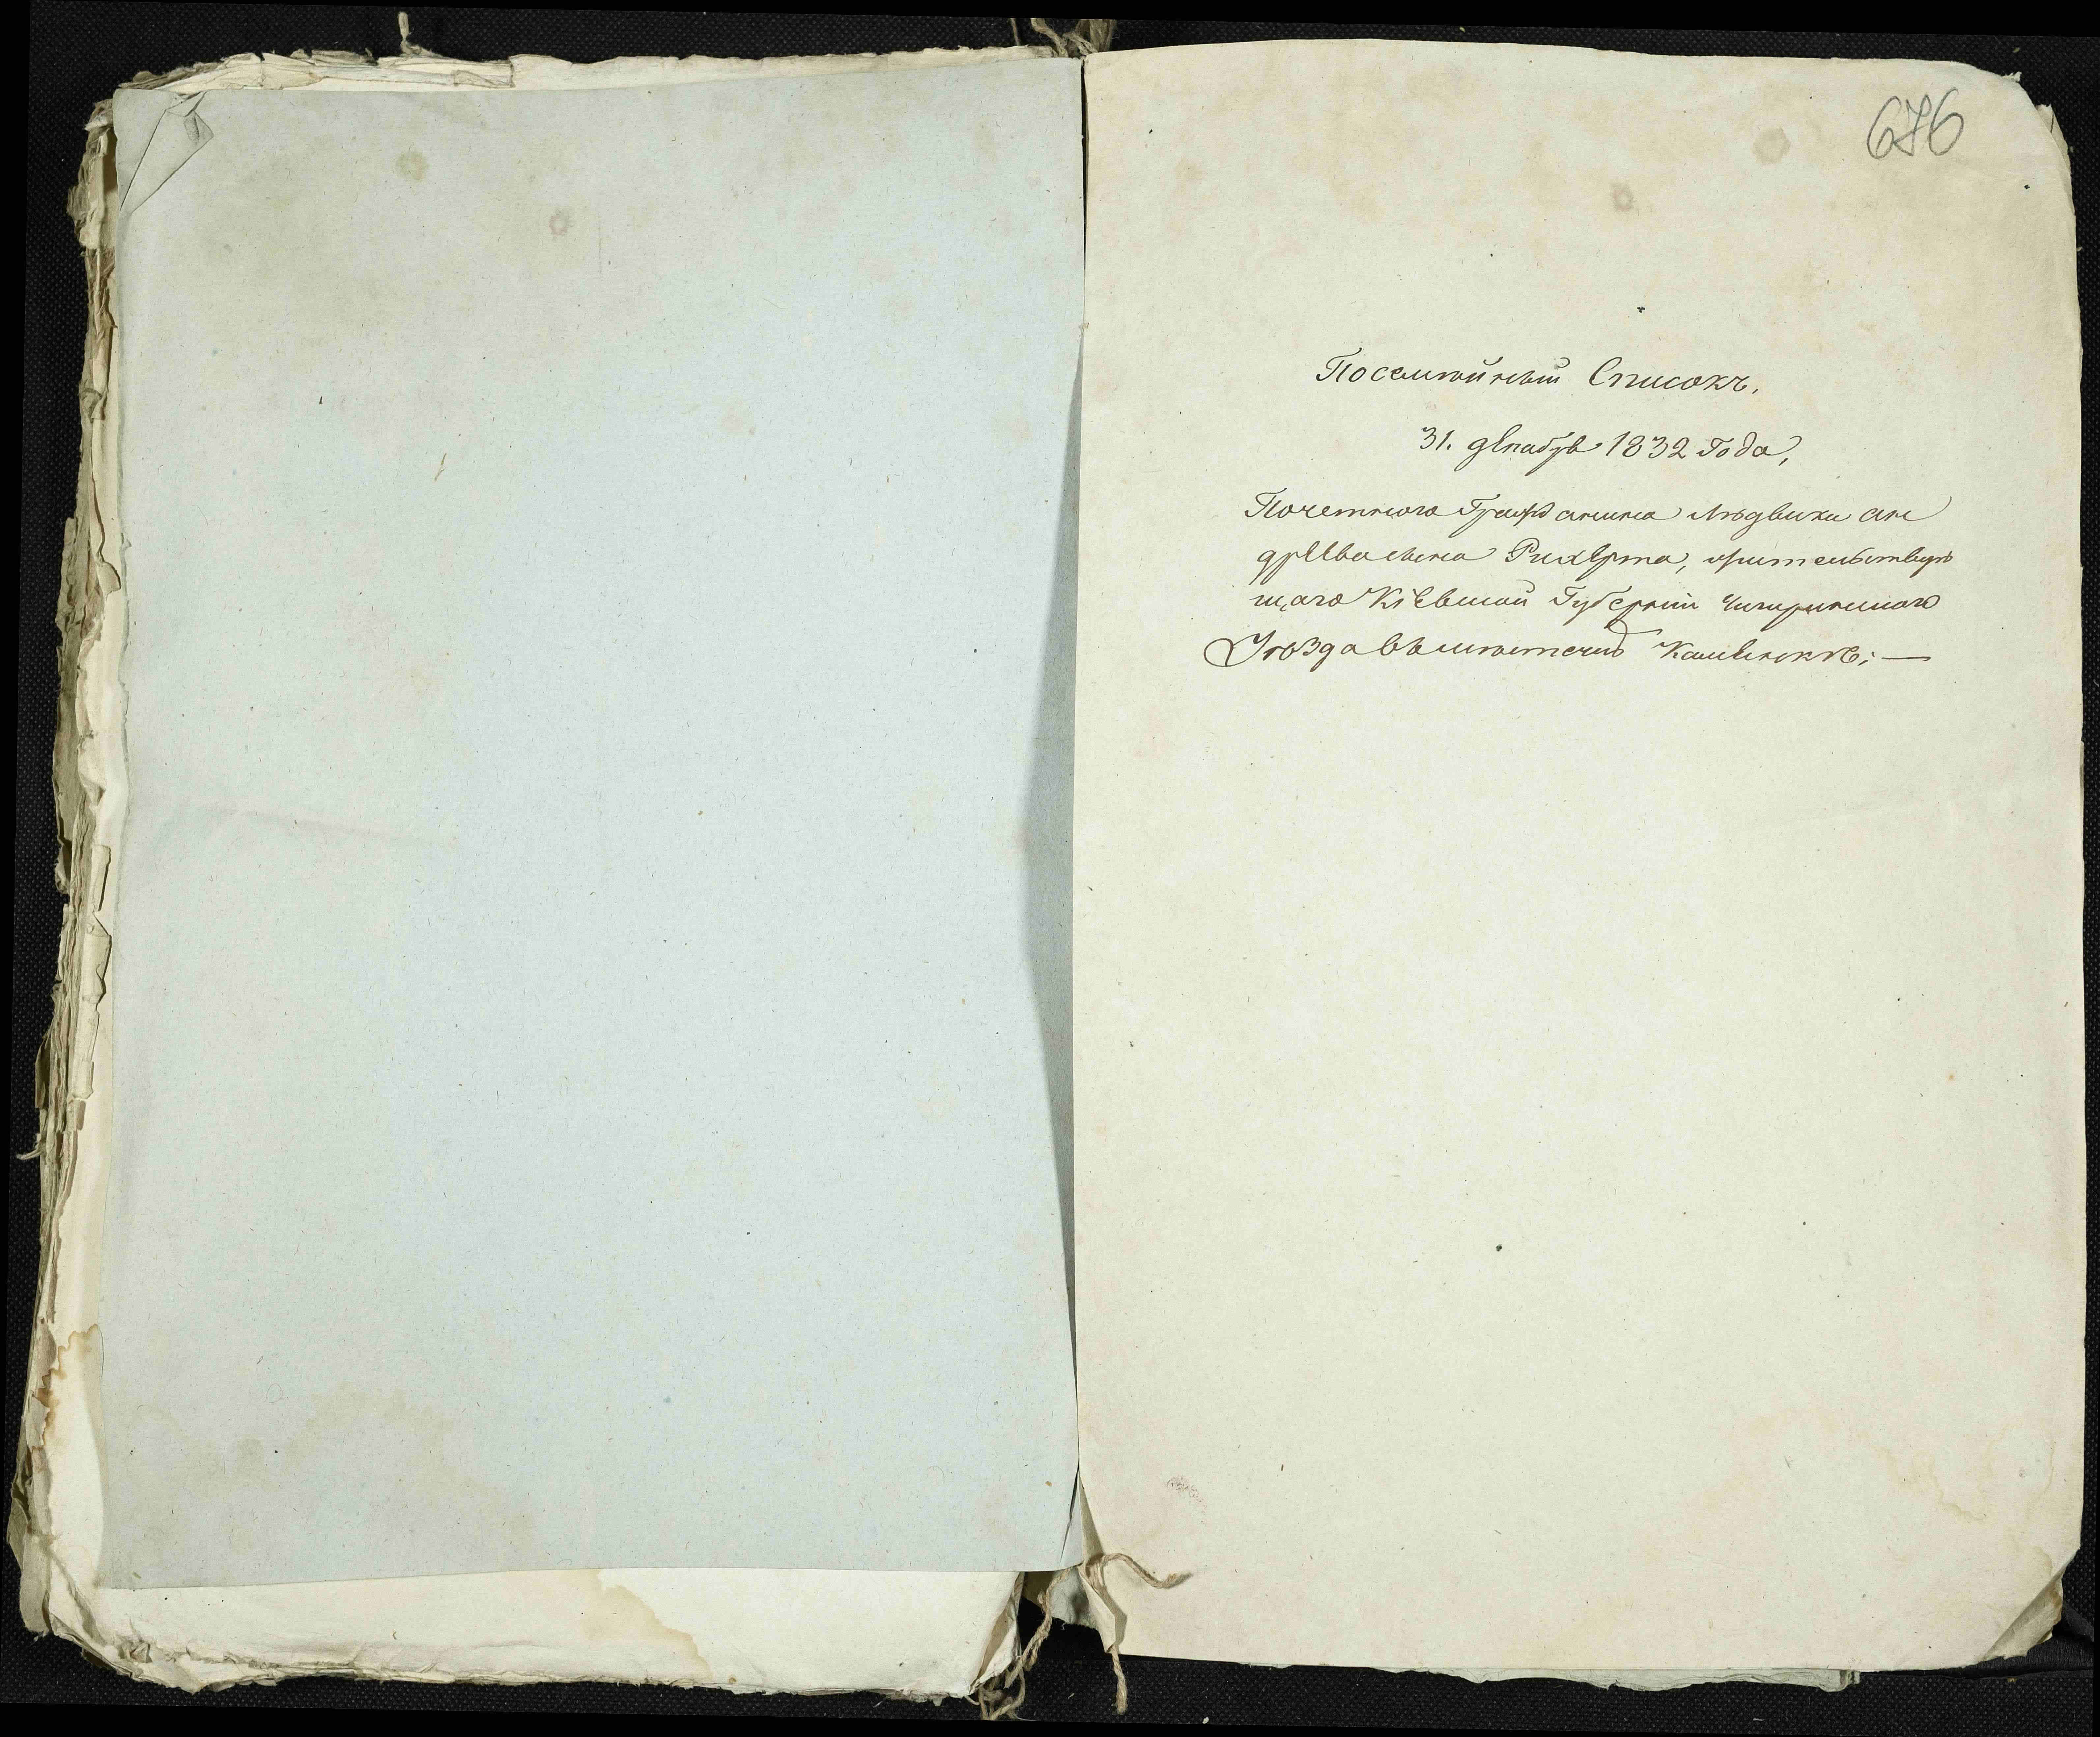 676
Посемѣйный Списокъ,
31. декабря 1832 Года,
Почетнаго Гражданина Людвика Ан
дреева сына Рихерта, жительствую
щаго Кіевской Губерніи Чигиринскаго
Уѣзда въ мѣстечкѣ Каменкѣ; —